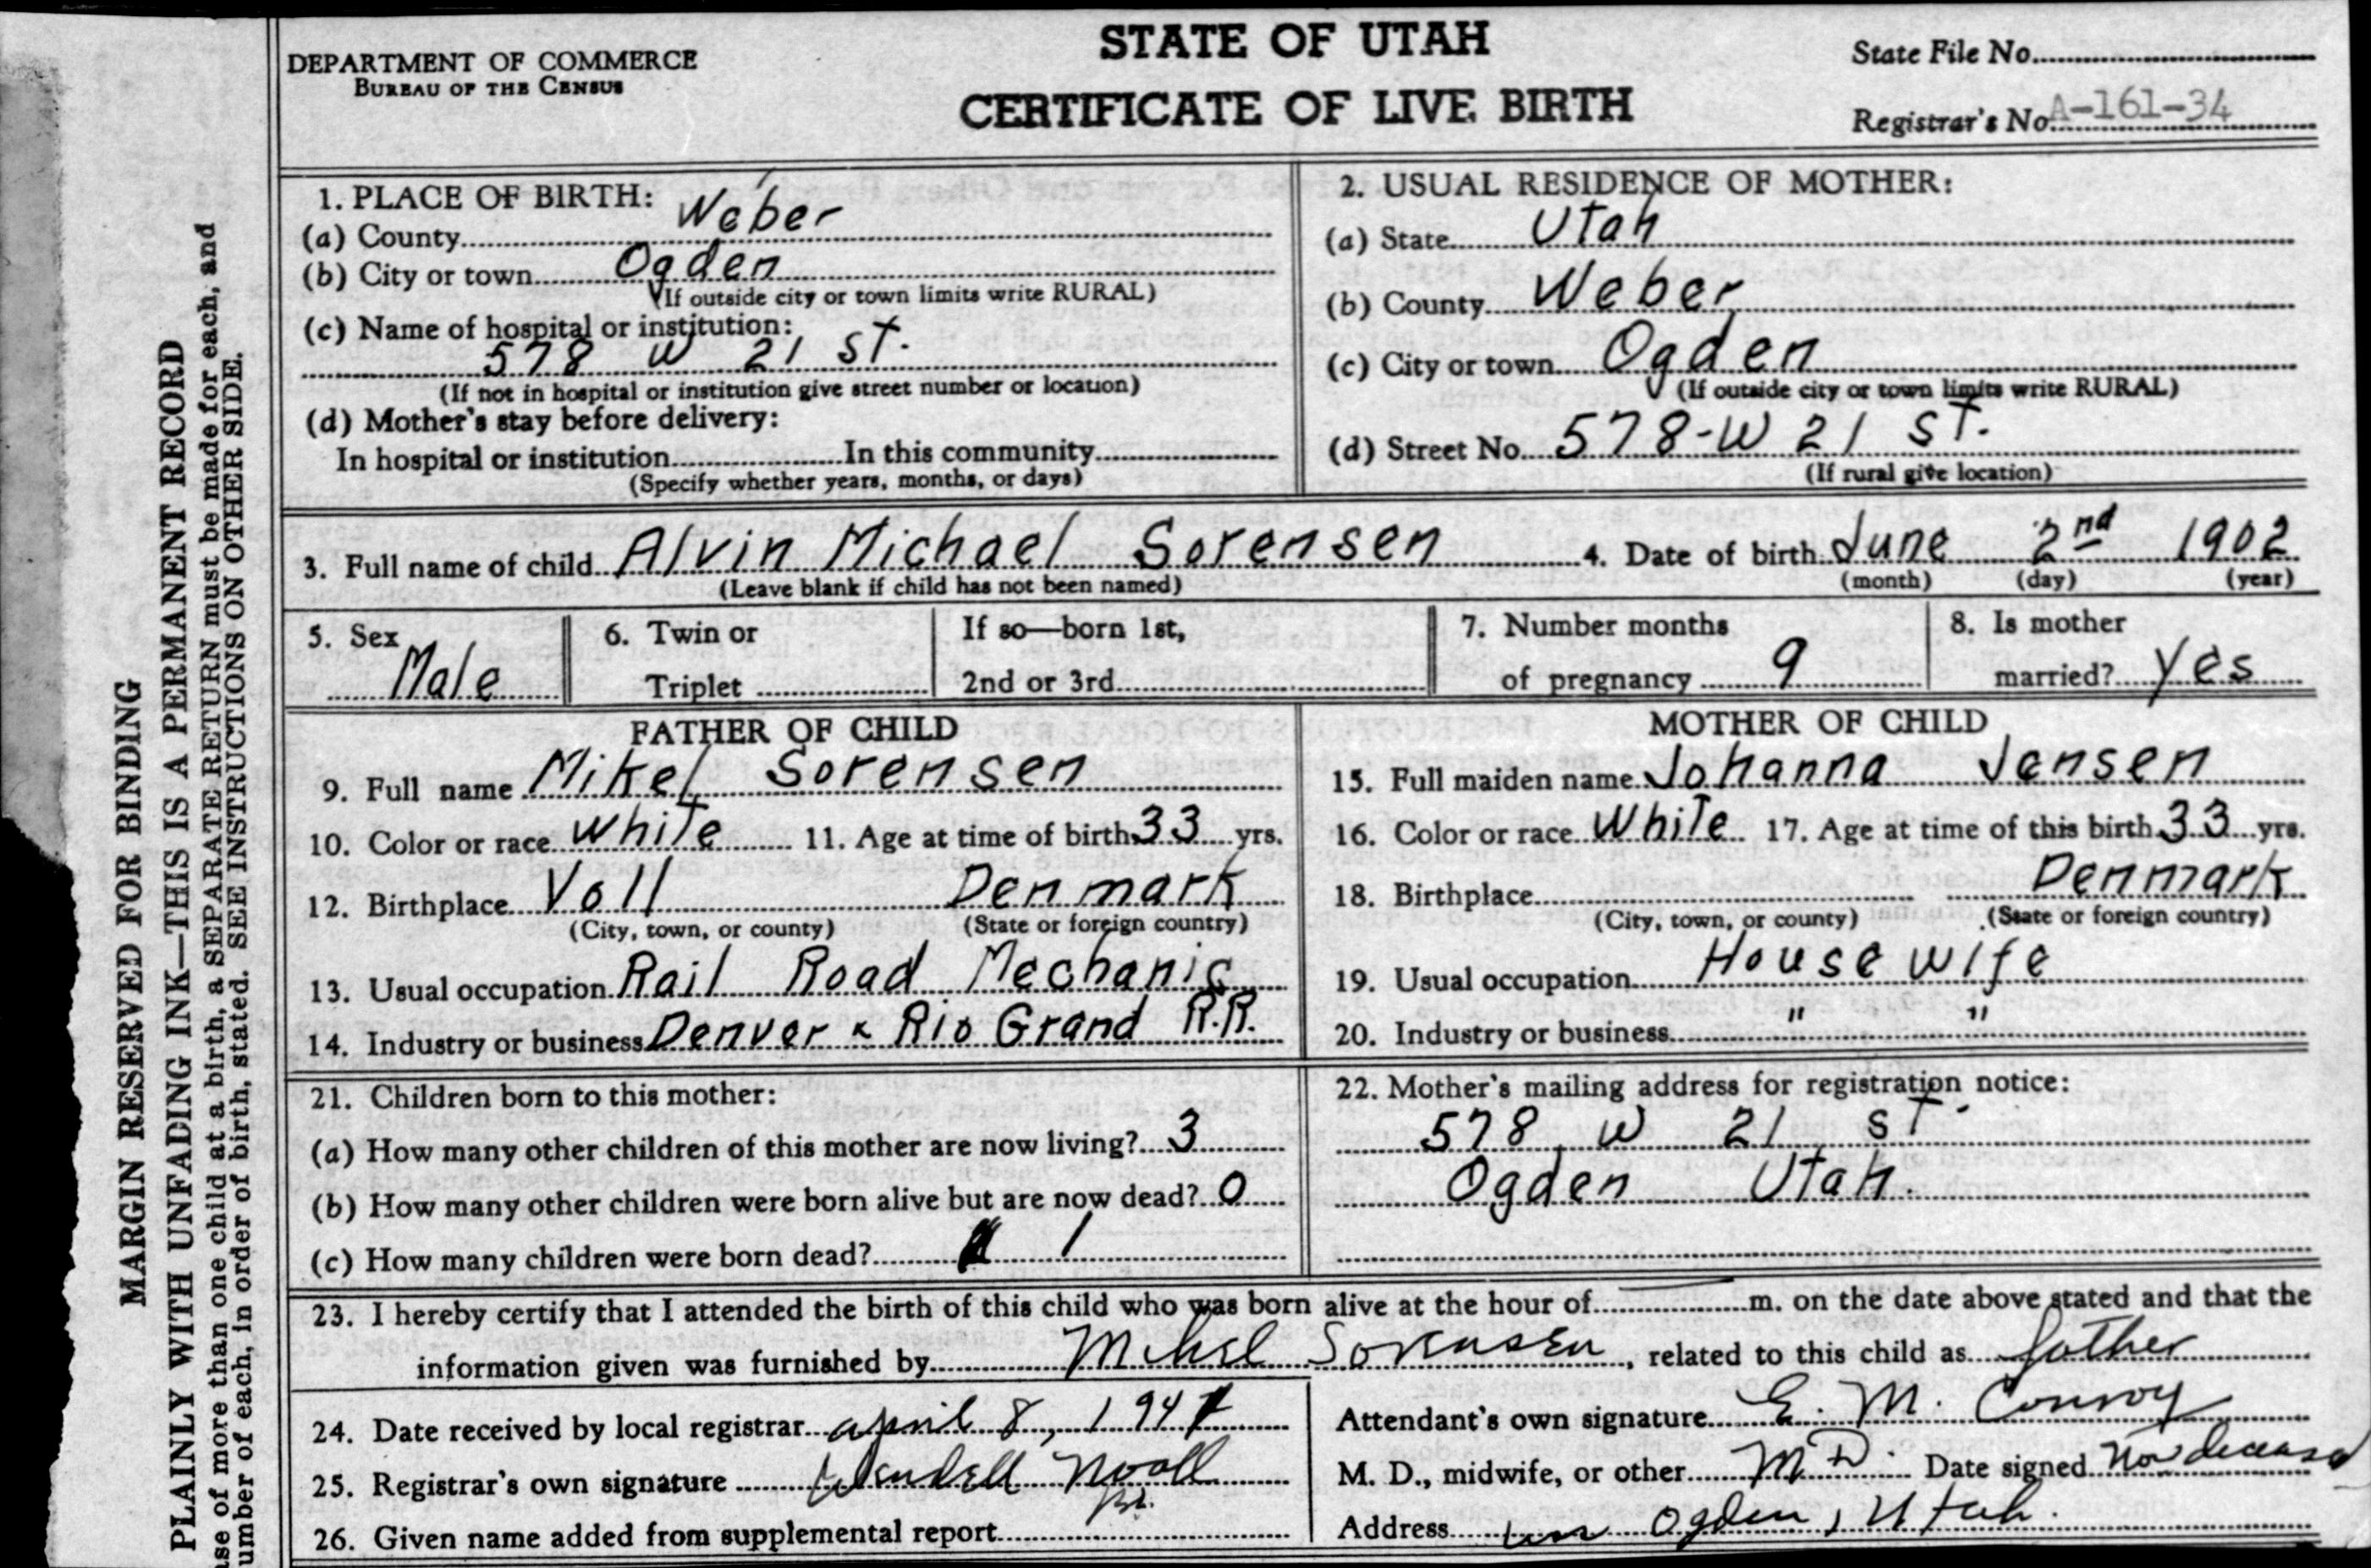 STATE OF UTAH
CERTIFICATE OF LIVE BIRTH
DEPARTMENT OF COMMERCE
BUREAU OF THE CENSUS
State File No.
Registrar's No. A-161-34
MARGIN RESERVED FOR BINDING
PLAINLY WITH UNFADING INK—THIS IS A PERMANENT RECORD
ase of more than one child at a birth, a SEPARATE RETURN must be made for each, and
umber of each, in order of birth, stated. SEE INSTRUCTIONS ON OTHER SIDE.
1. PLACE OF BIRTH:
(a) County Weber
(b) City or town Ogden
(If outside city or town limits write RURAL)
(c) Name of hospital or institution:
578 W 21 ST.
(If not in hospital or institution give street number or location)
(d) Mother's stay before delivery:
In hospital or institution In this community
(Specify whether years, months, or days)
2. USUAL RESIDENCE OF MOTHER:
(a) State Utah
(b) County Weber
(c) City or town Ogden
(If outside city or town limits write RURAL)
(d) Street No. 578-W 21 ST.
(If rural give location)
3. Full name of child Alvin Michael Sorensen 4. Date of birth June 2nd 1902
(Leave blank if child has not been named) (month) (day) (year)
5. Sex Male
6. Twin or
Triplet
If so—born 1st,
2nd or 3rd
7. Number months
of pregnancy 9
8. Is mother
married? Yes
FATHER OF CHILD
9. Full name Mikel Sorensen
10. Color or race White 11. Age at time of birth 33 yrs.
12. Birthplace Voll Denmark
(City, town, or county) (State or foreign country)
13. Usual occupation Rail Road Mechanic
14. Industry or business Denver & Rio Grand R.R.
MOTHER OF CHILD
15. Full maiden name Johanna Jensen
16. Color or race White 17. Age at time of this birth 33 yrs.
18. Birthplace Denmark
(City, town, or county) (State or foreign country)
19. Usual occupation House wife
20. Industry or business " "
21. Children born to this mother:
(a) How many other children of this mother are now living? 3
(b) How many other children were born alive but are now dead? 0
(c) How many children were born dead? 1
22. Mother's mailing address for registration notice:
578 W 21 ST.
Ogden Utah.
23. I hereby certify that I attended the birth of this child who was born alive at the hour of m. on the date above stated and that the
information given was furnished by Mikel Sorensen, related to this child as father
24. Date received by local registrar April 8, 1941
25. Registrar's own signature Wendell Noall
26. Given name added from supplemental report
Attendant's own signature E. M. Conroy
M. D., midwife, or other M D. Date signed Now deceased
Address Ogden, Utah.